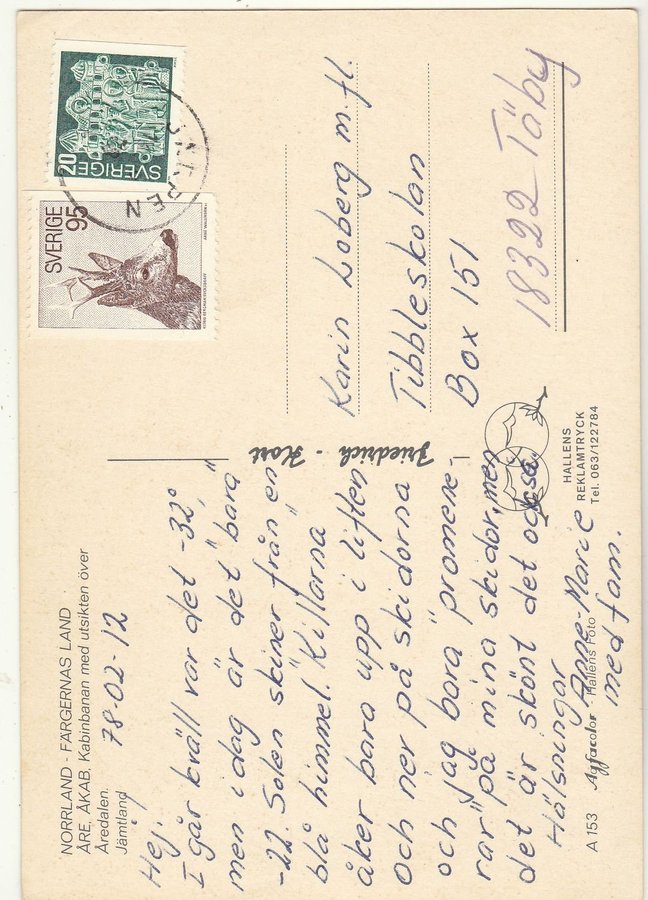 NORRLAND - FÄRGERNAS LAND
ÅRE, ÅKAB, Kabinbanan med utsikten över
Åredalen.
Jämtland
78-02-12
Hej!
I går kväll var det -32°,
men idag är det "bara"
-22. Solen skiner från en
blå himmel. "Killarna"
åker bara upp i liften
och ner på skidorna
och jag "bara" promene-
rar på mina skidor, men
det är skönt det också.
Hälsningar
Anne-Marie
med fam.
A 153 Agfacolor - Hallens Foto
Friedrich - Kort
HALLENS
REKLAMTRYCK
Tel. 063/122784
SVERIGE 20
SVERIGE 95
Karin Loberg m fl.
Tibbleskolan
Box 151
18322 Täby